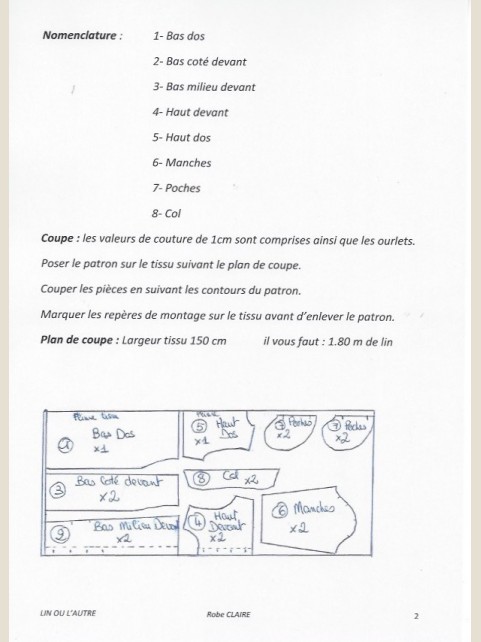 Nomenclature : 1- Bas dos
2- Bas coté devant
3- Bas milieu devant
4- Haut devant
5- Haut dos
6- Manches
7- Poches
8- Col
Coupe : les valeurs de couture de 1cm sont comprises ainsi que les ourlets.
Poser le patron sur le tissu suivant le plan de coupe.
Couper les pièces en suivant les contours du patron.
Marquer les repères de montage sur le tissu avant d'enlever le patron.
Plan de coupe : Largeur tissu 150 cm il vous faut : 1.80 m de lin
Bas Dos
x1
5 Haut
Dos
x1
7 Poches
x2
7 Poches
x2
3 Bas Coté devant
x2
8 Col x2
Bas Milieu Devant
x2
4 Haut
Devant
x2
6 Manches
x2
LIN OU L'AUTRE Robe CLAIRE 2